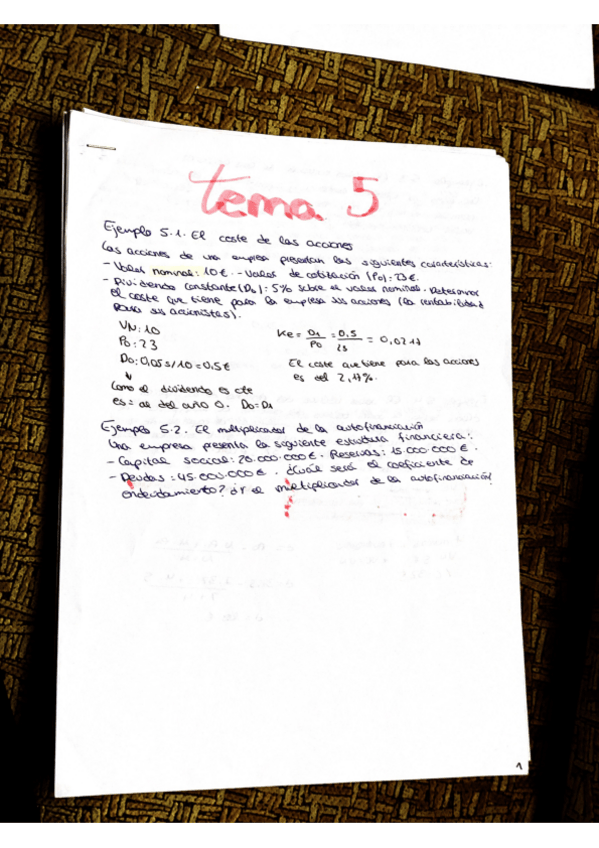 tema 5
Ejemplo 5.1. El coste de las acciones
Las acciones de una empresa presentan las siguientes características:
- Valor nominal: 10€. - Valor de cotización (P0): 23€.
- Dividendo constante (D0): 5% sobre el valor nominal. Determinar
el coste que tiene para la empresa sus acciones (la rentabilidad
para sus accionistas).
VN: 10
P0: 23
D0: 0,05 s/10 = 0,5€
Como el dividendo es cte
es = al del año 0. D0=D1
Ke = D1/P0 = 0,5/23 = 0,0217
El coste que tiene para las acciones
es del 2,17%.
Ejemplo 5.2. El multiplicador de la autofinanciación
Una empresa presenta la siguiente estructura financiera:
- Capital social: 20.000.000€. Reservas: 15.000.000€.
- Deudas: 45.000.000€. ¿Cuál será el coeficiente de
endeudamiento? ¿Y el multiplicador de la autofinanciación?
1